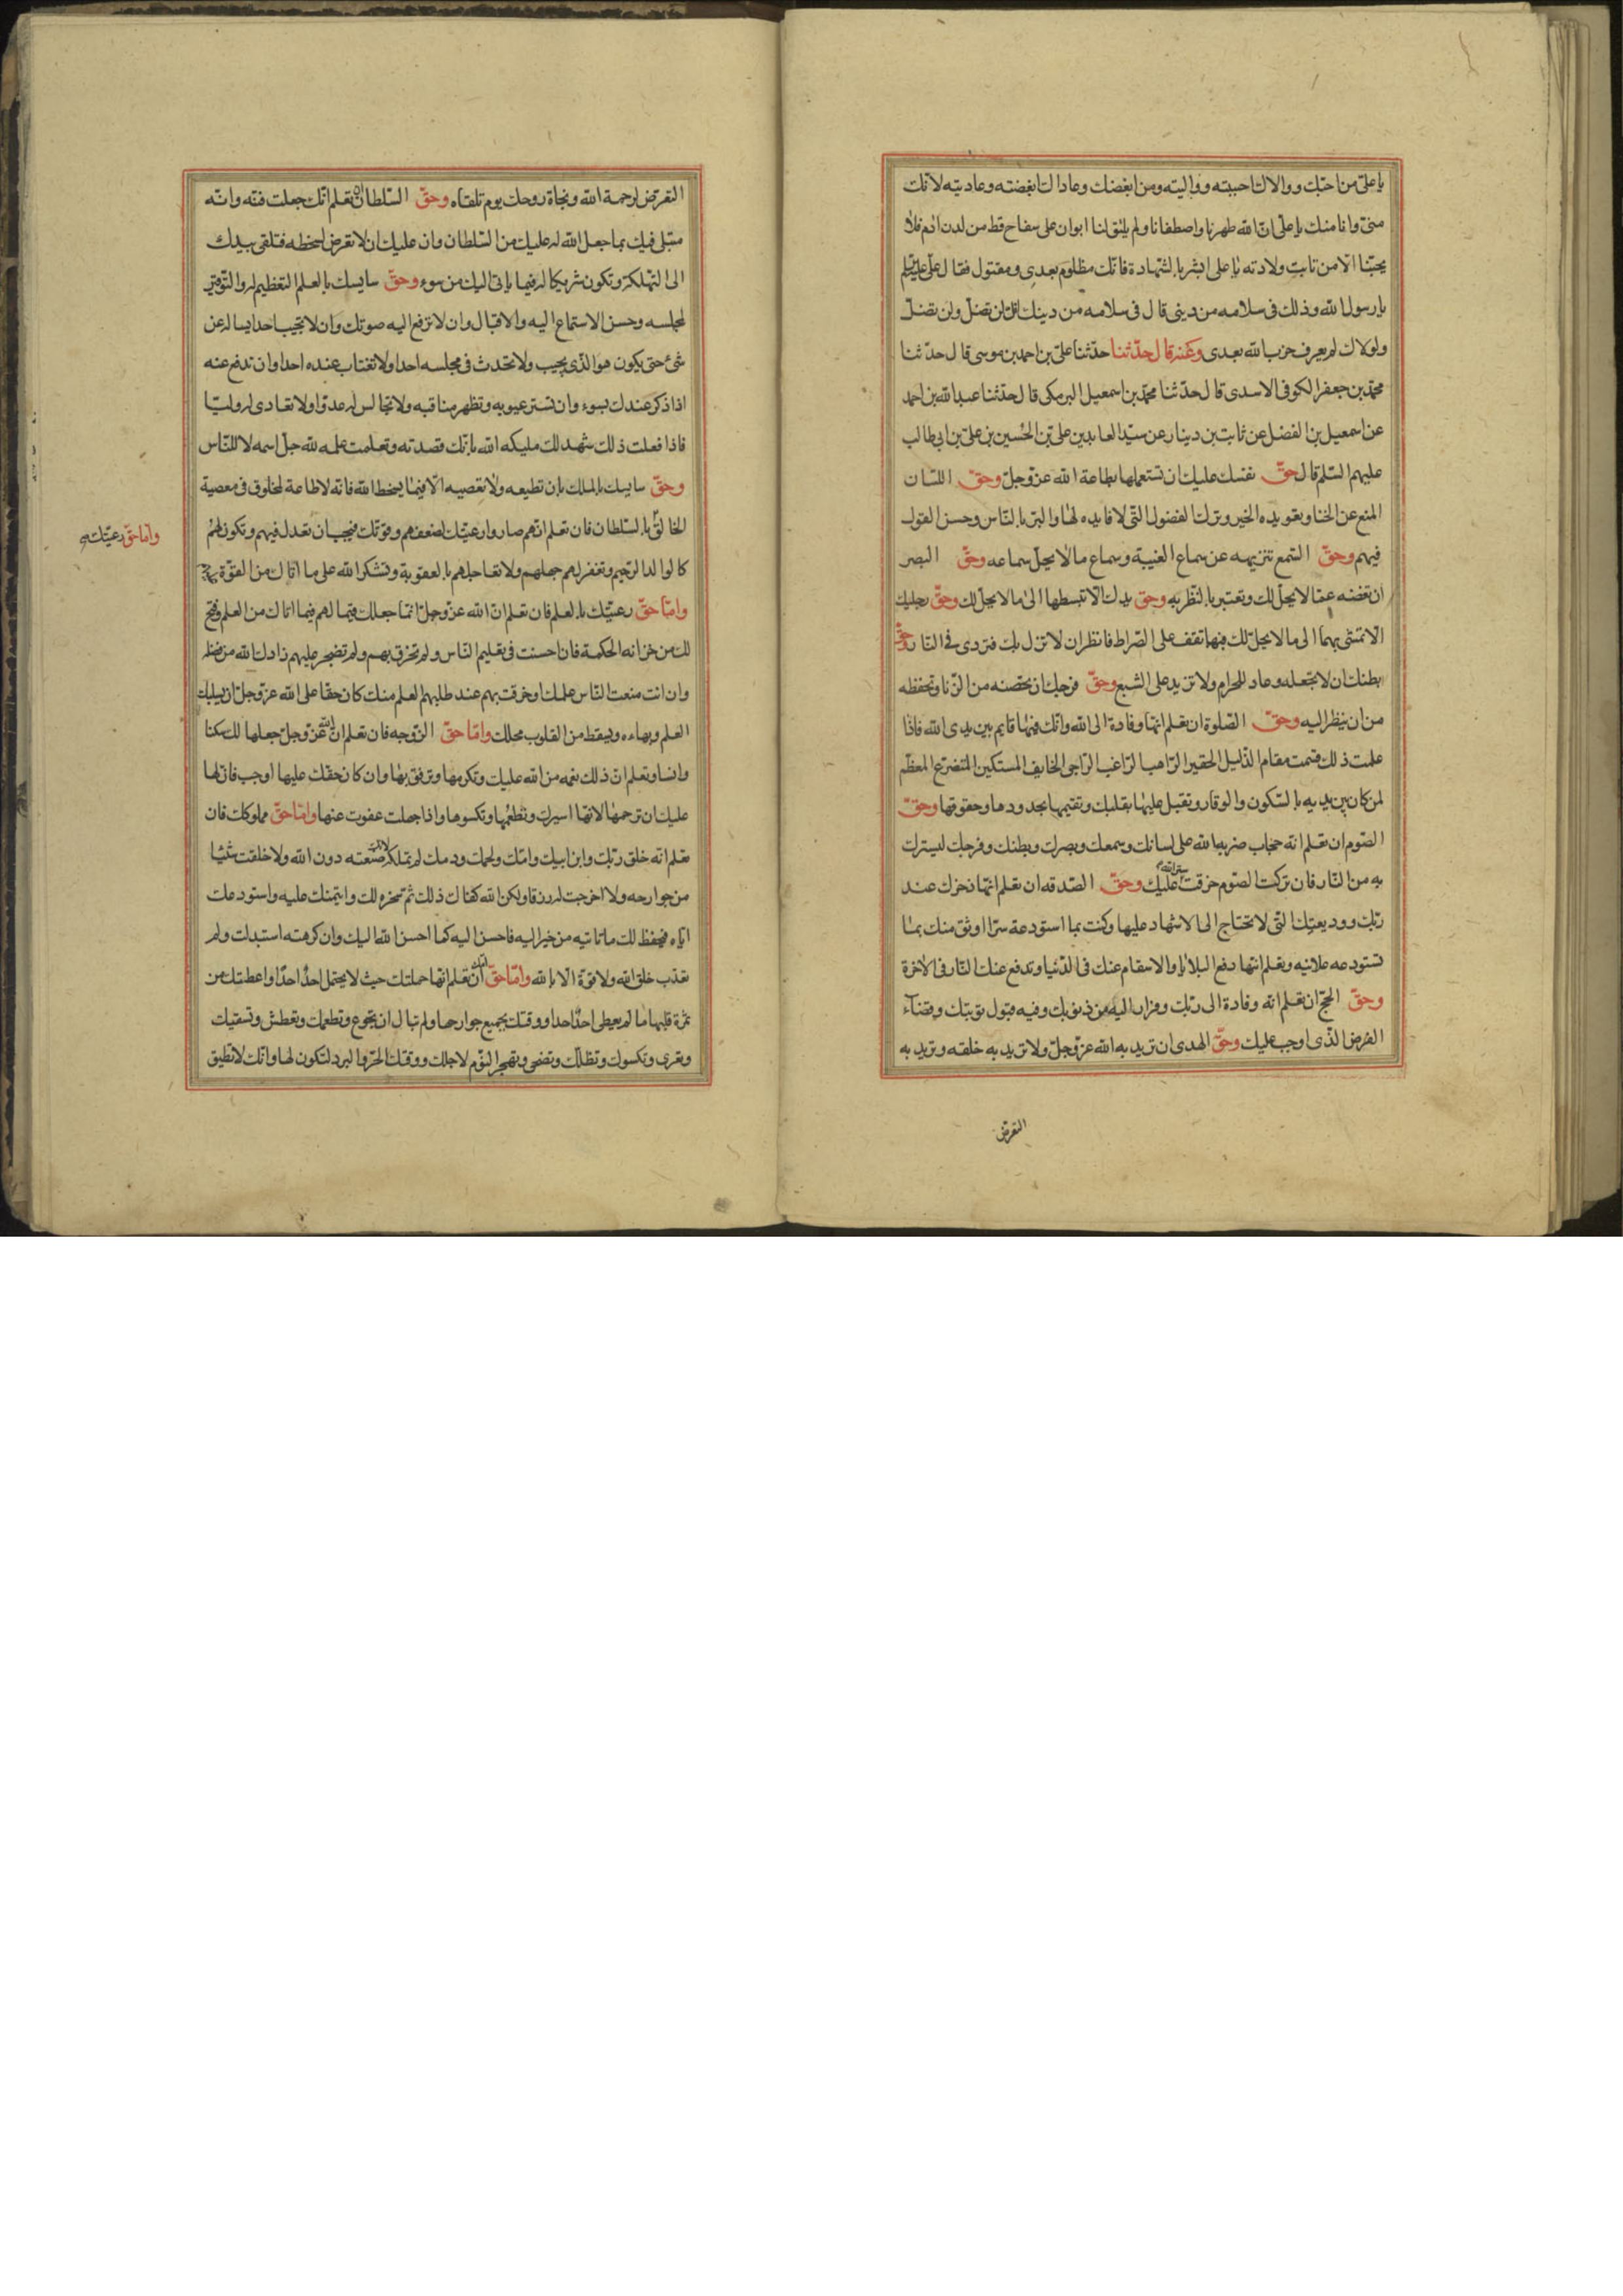 يا على من احبّك ووالاك احببته وواليته ومن ابغضك وعاداك ابغضته وعاديته لانّك
منّى وانا منك يا على انّ الله طهرنا واصطفانا ولم يلتق لنا ابوان على سفاح قط من لدن ادم فلا
يحبّنا الّا من تابت ولادته يا على ابشر بالشهادة فانّك مظلوم بعدى ومقتول فقال على عليه السلم
يا رسول الله وذلك فى سلامه من دينى قال فى سلامه من دينك انك لن تضلّ ولن تضلّ
ولولاك لم يعرف حزب الله بعدى وعنه قال حدّثنا حدّثنا علىّ بن احمد بن موسى قال حدّثنا
محمّد بن جعفر الكوفى الاسدى قال حدّثنا محمّد بن اسمعيل البرمكى قال حدّثنا عبد الله بن احمد
عن اسمعيل بن الفضل عن ثابت بن دينار عن سيّد العابدين علىّ بن الحسين بن علىّ بن ابى طالب
عليهم السّلم قال حقّ نفسك عليك ان تستعملها بطاعة الله عزّ وجلّ وحقّ اللسّان
المنع عن الخنا وتعويده الخير وترك الفضول التّى لا فايده لها والبرّ بالنّاس وحسن القول
فيهم وحقّ السّمع تنزيهه عن سماع الغيبة وسماع ما لا يحلّ سماعه وحقّ البصر
ان تغضه عمّا لا يحلّ لك وتعتبر بالنّظر به وحق يدك الّا تبسطها الى ما لا يحلّ لك وحقّ رجليك
الّا تمشى بهما الى ما لا يحلّ لك فبهما تقف على الصّراط فانظر ان لا تزل بك فتردى فى النّار وحقّ
بطنك ان لا تجعله وعاء للحرام ولا تزيد على الشبع وحقّ فرجك ان تحصّنه من الزّنا وتحفظه
من ان ينظر اليه وحقّ الصّلوة ان تعلم انّها وفادة الى الله وانّك فيها قايم بين يدى الله فاذا
علمت ذلك قمت مقام الذّليل الحقير الرّاهب الرّاغب الرّاجى الخايف المستكين المتضرّع المعظّم
لمن كان بين يديه بالسّكون والوقار وتقبل عليها بقلبك وتقيمها بحدودها وحقوقها وحقّ
الصّوم ان تعلم انّه حجاب ضربه الله على لسانك وسمعك وبصرك وبطنك وفرجك ليسترك
به من النّار فان تركت الصّوم خرقت ستر الله عليك وحقّ الصّدقه ان تعلم انّها ذخرك عند
ربّك ووديعتك التّى لا تحتاج الى الاشهاد عليها وكنت بما استودعة سرّا اوثق منك بما
تستودعه علانيه وتعلم انّها دفع البلايا والاسقام عنك فى الدّنيا وتدفع عنك النّار فى الاخرة
وحقّ الحجّ ان تعلم انّه وفادة الى ربّك وفرار اليه من ذنوبك وفيه قبول توبتك وقضاء
الفرض الّذى اوجب عليك وحقّ الهدى ان تريد به الله عزّ وجلّ ولا تريد به خلقه وتريد به
التعرض
التعرّض لرحمة الله ونجاة روحك يوم تلقاه وحقّ السّلطان ان تعلم انّك جعلت فتنه وانّه
مبتلى فيك بما جعل الله له عليك من السّلطان وان عليك ان لا تعرض لسخطه فتلقى بيدك
الى التهلكة وتكون شريكا له فيما يأتى اليك من سوء وحقّ سايسك بالعلم التعظيم له والتّوقير
لمجلسه وحسن الاستماع اليه والاقبال وان لا ترفع اليه صوتك وان لا تجيب احدا يساله عن
شئ حتى يكون هو الّذى يجيب ولا تحدث فى مجلسه احدا ولا تغتاب عنده احدا وان تدفع عنه
اذا ذكر عندك بسوء وان تستر عيوبه وتظهر مناقبه ولا تجالس له عدوّا ولا تعادى له وليّا
فاذا فعلت ذلك شهد لك مليكه الله بانّك قصدته وتعلمت علمه لله جلّ اسمه لا للنّاس
وحقّ سايسك بالملك بان تطيعه ولا تعصيه الّا فيما يسخط الله فانّه لا طاعة لمخلوق فى معصية
الخالق
وامّا حقّ رعيّتك
بالسّلطان فان تعلم انّهم صاروا رعيّتك لضعفهم وقوّتك فيجب ان تعدل فيهم وتكون لهم
كالوالد الرّحيم وتغفر لهم جهلهم ولا تعاجلهم بالعقوبة وتشكر الله على ما اتاك من القوّة
وامّا حقّ رعيّتك بالعلم فان تعلم انّ الله عزّ وجلّ انّما جعلك قيّما لهم فيما اتاك من العلم وفتح
لك من خزانه الحكمة فان احسنت فى تعليم النّاس ولم تخرق بهم ولم تضجر عليهم زادك الله من فضله
وان انت منعت النّاس علمك وخرقت بهم عند طلبهم العلم منك كان حقّا على الله عزّ وجلّ ان يسلبك
العلم وبهاءه ويسقط من القلوب محلك وامّا حقّ الزّوجه فان تعلم انّ الله عزّ وجلّ جعلها لك سكنا
وانسا وتعلم انّ ذلك نعمه من الله عليك وتكرمها وترفق بها وان كان حقك عليها اوجب فانّ لها
عليك ان ترحمها لانّها اسيرك وتطعمها وتكسوها واذا جهلت عفوت عنها وامّا حقّ مملوكك فان
تعلم انّه خلق ربّك وابن ابيك وامّك ولحمك ودمك لم تملكه لانك صنعته دون الله ولا خلقت شيئا
من جوارحه ولا اخرجت له رزقا ولكن الله كفاك ذلك ثم سخره لك وايتمنك عليه واستودعك
ايّاه فيحفظ لك ما تاتيه من خير اليه فاحسن اليه كما احسن الله اليك وان كرهته استبدلت ولم
تعذّب خلق الله ولا قوّة الّا بالله وامّا حقّ امّك ان تعلم انّها حملتك حيث لا يحتمل احدٌ احدًا واعطتك من
ثمرة قلبها ما لم يعطى احدٌ احدا ووقتك بجميع جوارحها ولم تبال ان تجوع وتطعمك وتعطش وتسقيك
وتعرى وتكسوك وتظلّك وتضحى وتهجر النّوم لاجلك ووقتك الحرّ والبرد لتكون لها وانّك لا تطيق